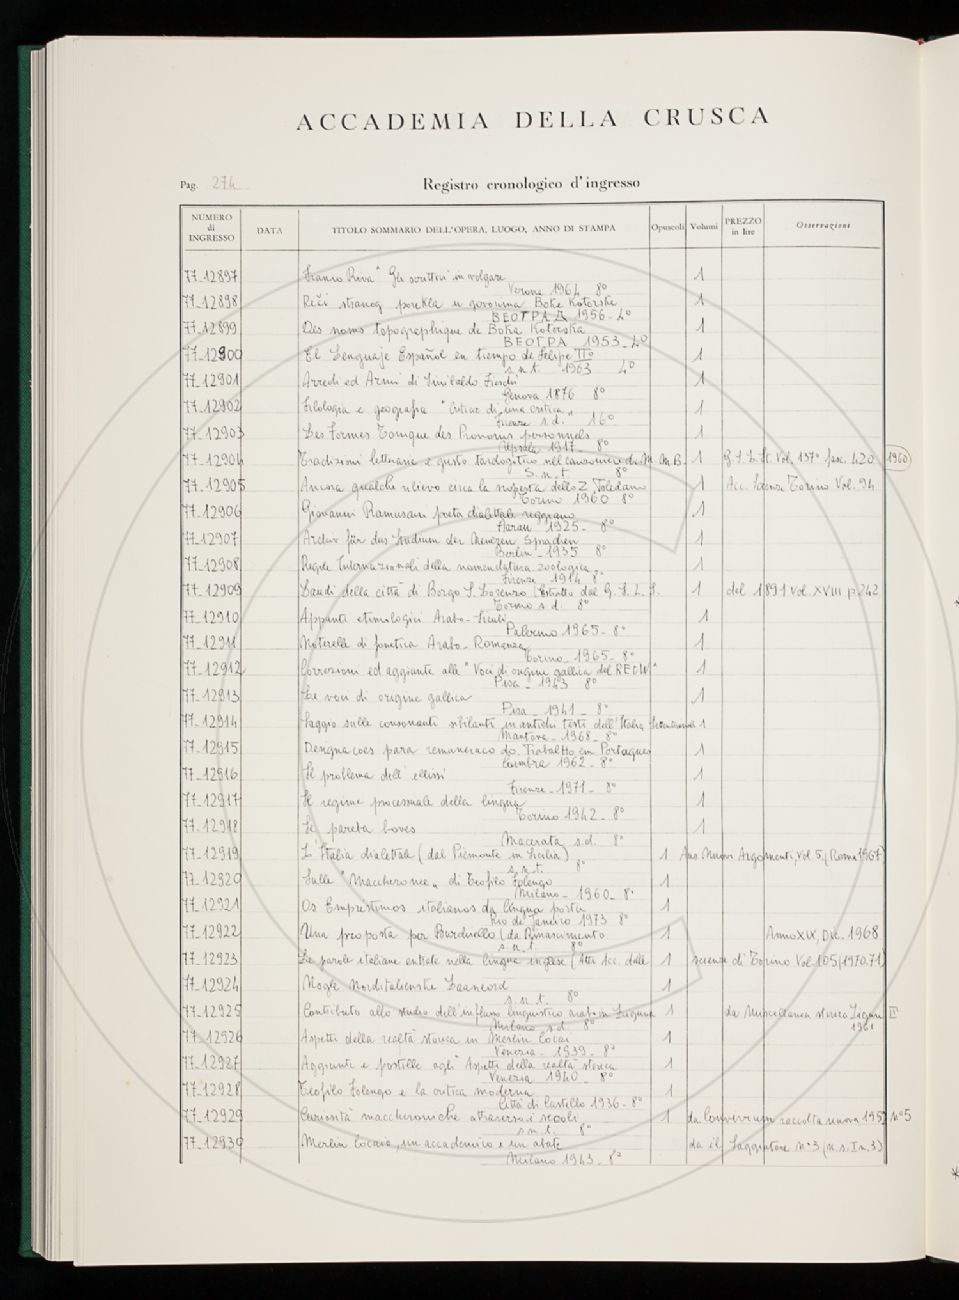 ACCADEMIA DELLA CRUSCA
Pag. 274 Registro cronologico d'ingresso
NUMERO di INGRESSO DATA TITOLO SOMMARIO DELL'OPERA, LUOGO, ANNO DI STAMPA Opuscoli Volumi PREZZO in lire Osservazioni
77-12897 Franco Riva " Gli scrittori in volgare 1
Verona 1964 8°
77-12898 Reči stranog porekla u govorima Boke Kotorske 1
БЕОГРАД 1956-4°
77-12899 Des noms topographique de Boka Kotorska 1
БЕОГРА 1953-4°
77-12900 El Lenguaje Español en tiempo de Felipe II° 1
s.n.t. 1963 4°
77-12901 Arredi ed Armi di Sinibaldo Fieschi 1
Genova 1876 8°
77-12902 Filologia e geografia " Critica di una critica " 1
Firenze s.d. 16°
77-12903 Les Formes Tonique des Pronoms personnels 1
Upsala 1917- 8°
77-12904 Tradizioni letterarie e gusto tardogotico nel canzoniere di M. M. B. 1 G.S.L.It. Vol. 137° fasc. 420 1960
S.n.t 8°
77-12905 Ancora qualche rilievo circa la scoperta dello Z Toledano 1 Acc. Scienze Torino Vol. 94
Torino 1960 8°
77-12906 Giovanni Ramusani poeta dialettale reggiano 1
Aarau 1925- 8°
77-12907 Archiv für das Studium der Neueren Sprachen 1
Berlin - 1935 8°
77-12908 Regole Internazionali della nomenclatura zoologica 1
Firenze 1914 8°
77-12909 Laudi della città di Borgo S. Lorenzo (Estratto dal G. S. L. I. 1 del 1891 vol. XVIII p. 242
Torino s.d. 8°
77-12910 Appunti etimologici Arabo-Siculi 1
Palermo 1965- 8°
77-12911 Noterella di fonetica Arabo-Romanza 1
Torino - 1965- 8°
77-12912 Correzioni ed aggiunte alle " Voci di origine gallica del REW " 1
Pisa - 1943 8°
77-12913 Le voci di origine gallica 1
Pisa - 1941 - 8°
77-12914 Saggio sulle consonanti sibilanti in antichi testi dell'Italia Settentrionale 1
Mantova - 1968- 8°
77-12915 Designacoes para remuneracao do Trabalho em Portugues 1
Coimbra 1962- 8°
77-12916 Il problema dell'ellissi 1
Firenze - 1971 - 8°
77-12917 Il regime processuale della lingua 1
Torino 1942 - 8°
77-12918 Se pareba boves 1
Macerata s.d. 8°
77-12919 L'Italia dialettale (dal Piemonte in Sicilia) 1 Nuovi Argomenti, Vol 5, (Roma 1967)
s.n.t. 8°
77-12920 Sulle "Maccheronee" di Teofilo Folengo 1
Milano - 1960- 8°
77-12921 Os Emprestimos italianos da lingua portu 1
Rio de Janeiro 1973 8°
77-12922 Una proposta per Burchiello (da Rinascimento 1 Anno XIX, Dic. 1968
s.n.t. 8°
77-12923 Le parole italiane entrate nella lingua inglese (Atti Acc. delle 1 scienze di Torino Vol 105 (1970.71)
77-12924 Nogle Norditalienske Laaneord 1
s.n.t. 8°
77-12925 Contributo allo studio dell'influsso linguistico arabo in Liguria 1 da Miscellanea storica Ligure II
Milano s.d. 8° 1961
77-12926 Aspetti della realtà storica in Merlin Cocai 1
Venezia - 1939- 8°
77-12927 Aggiunte e postille agli "Aspetti della realtà storica 1
Venezia 1940- 8°
77-12928 Teofilo Folengo e la critica moderna 1
Città di Castello 1936- 8°
77-12929 Curiosità maccheroniche attraverso i secoli 1 da Convivium raccolta nuova 1952 N°5
s.n.t. 8°
77-12930 Merlin Cocaio, un accademico e un abate da il Saggiatore N°3 (n.s. I n.3)
Milano 1943- 8°